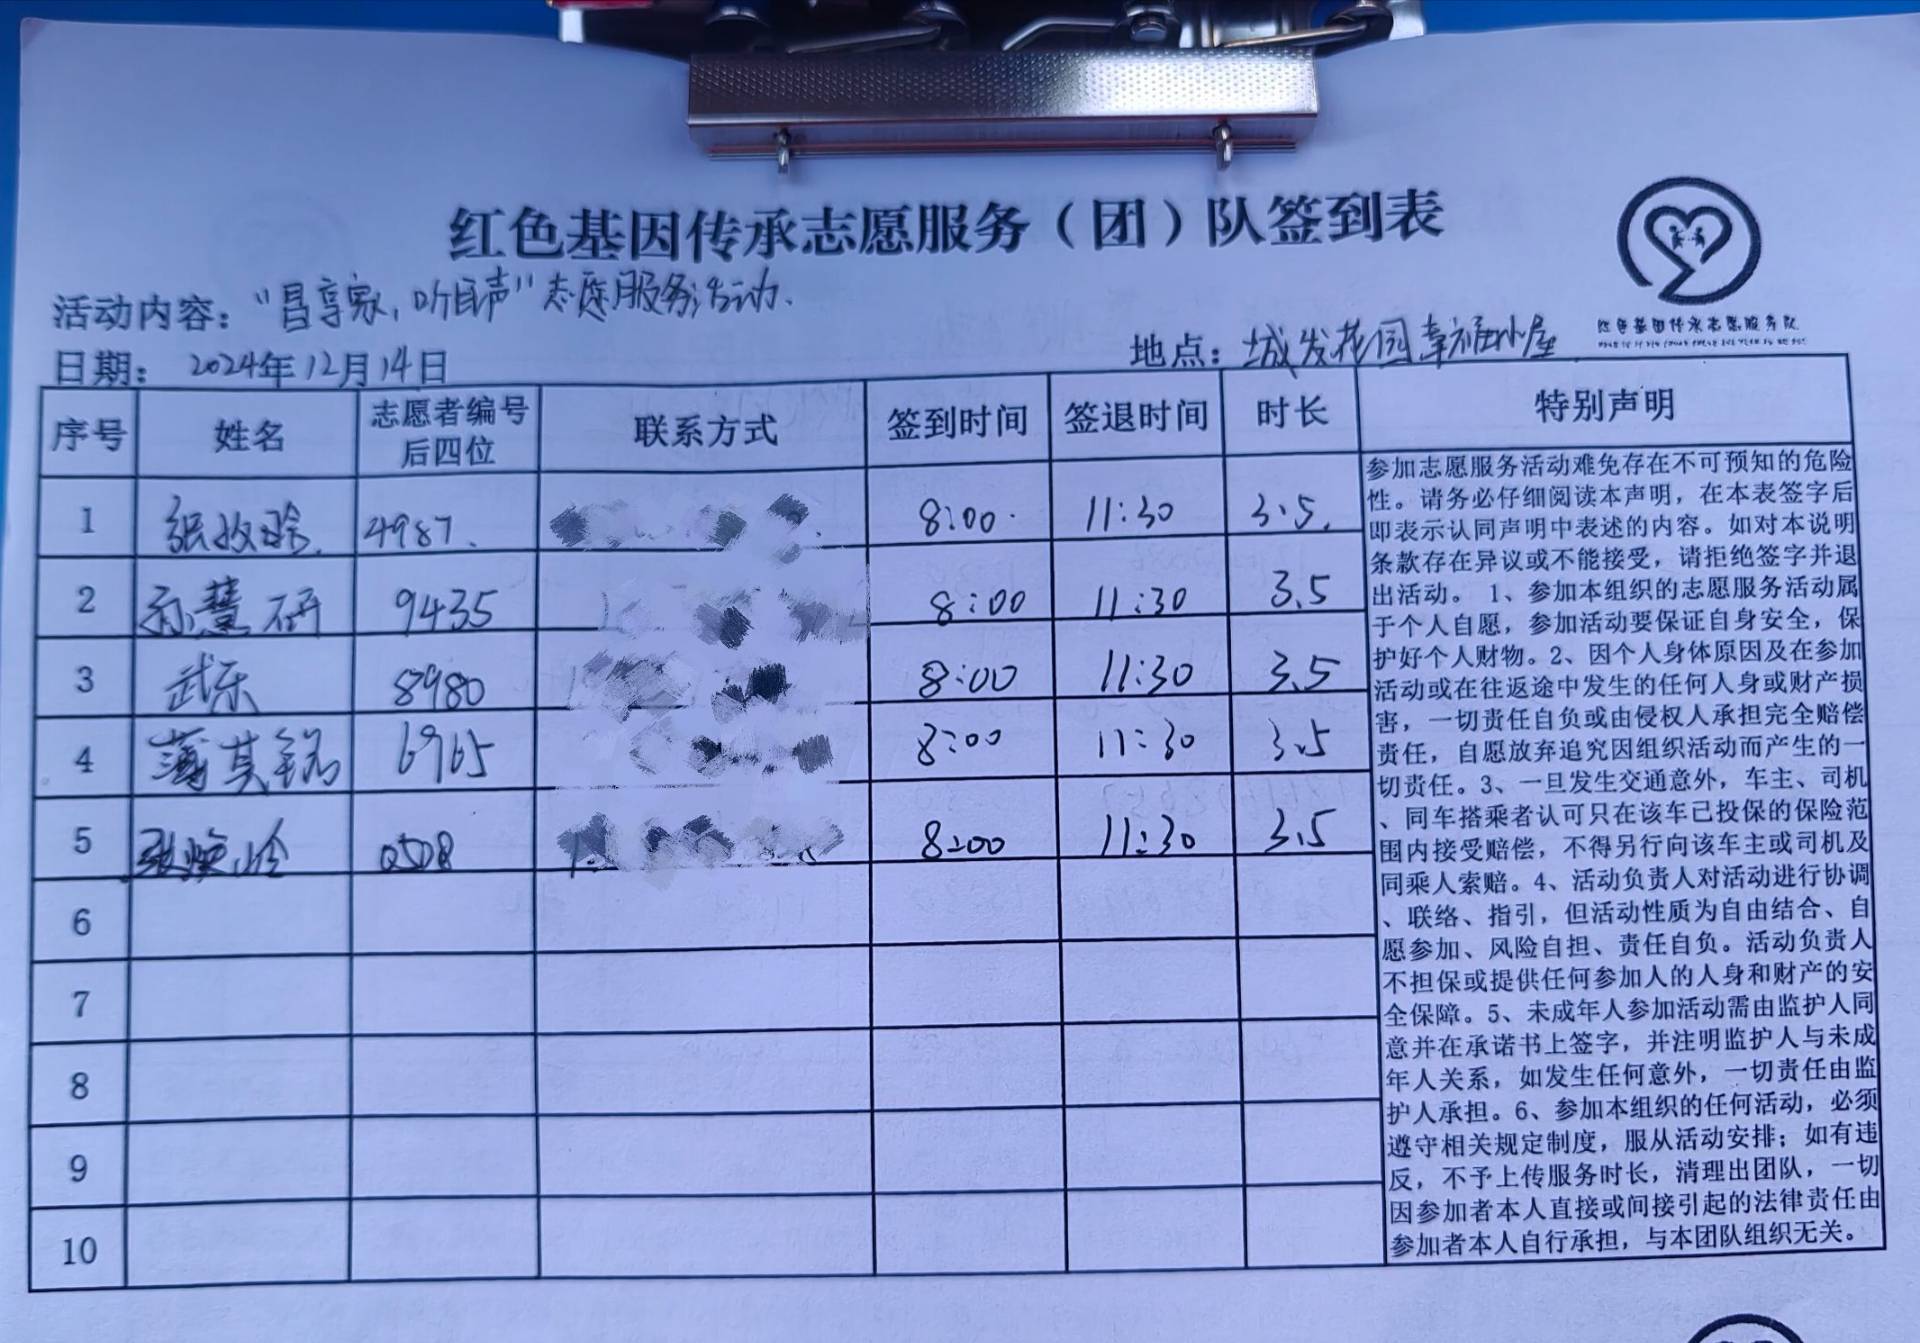 红色基因传承志愿服务（团）队签到表
活动内容："昌享家,听昌声"志愿服务活动.
日期：2024年12月14日
地点：城发花园幸福小屋
红色基因传承志愿服务队
序号 姓名 志愿者编号后四位 联系方式 签到时间 签退时间 时长 特别声明
1 4987. 8:00 11:30 3.5.
2 孙慧研 9435 8:00 11:30 3.5
3 武乐 8980 8:00 11:30 3.5
4 薄其铭 6965 8:00 11:30 3.5
5 0508 8:00 11:30 3.5
6
7
8
9
10
参加志愿服务活动难免存在不可预知的危险
性。请务必仔细阅读本声明，在本表签字后
即表示认同声明中表述的内容。如对本说明
条款存在异议或不能接受，请拒绝签字并退
出活动。1、参加本组织的志愿服务活动属
于个人自愿，参加活动要保证自身安全，保
护好个人财物。2、因个人身体原因及在参加
活动或在往返途中发生的任何人身或财产损
害，一切责任自负或由侵权人承担完全赔偿
责任，自愿放弃追究因组织活动而产生的一
切责任。3、一旦发生交通意外，车主、司机
、同车搭乘者认可只在该车已投保的保险范
围内接受赔偿，不得另行向该车主或司机及
同乘人索赔。4、活动负责人对活动进行协调
、联络、指引，但活动性质为自由结合、自
愿参加、风险自担、责任自负。活动负责人
不担保或提供任何参加人的人身和财产的安
全保障。5、未成年人参加活动需由监护人同
意并在承诺书上签字，并注明监护人与未成
年人关系，如发生任何意外，一切责任由监
护人承担。6、参加本组织的任何活动，必须
遵守相关规定制度，服从活动安排；如有违
反，不予上传服务时长，清理出团队，一切
因参加者本人直接或间接引起的法律责任由
参加者本人自行承担，与本团队组织无关。